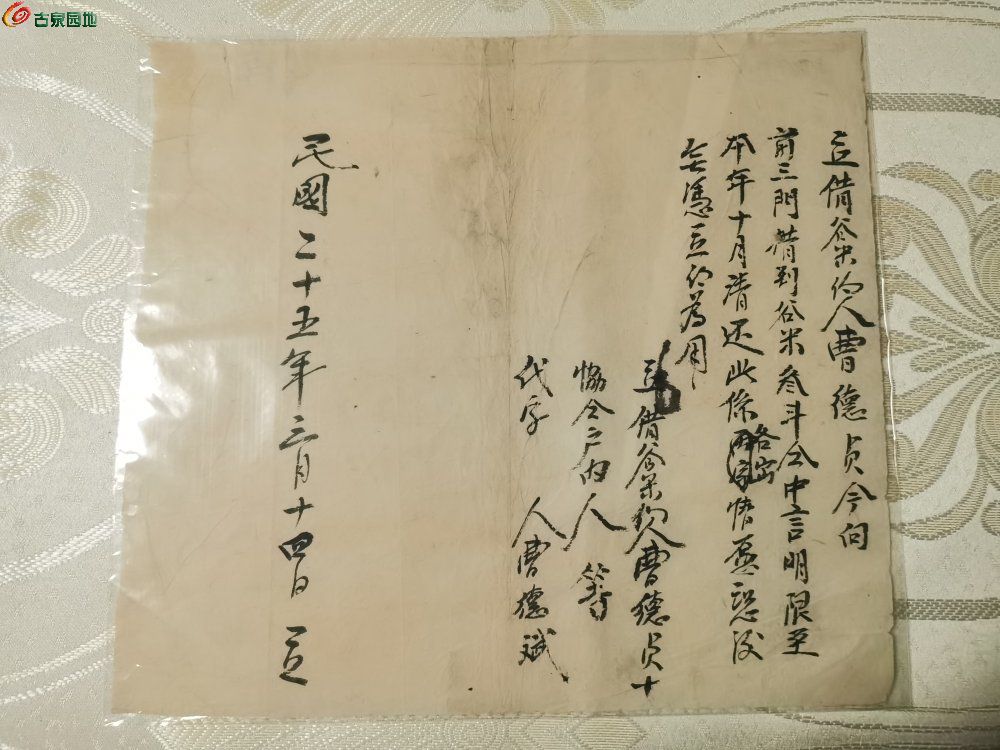 古泉园地
立借谷米約人曹德貞今向
前三門借到谷米叁斗公中言明限至
本年十月清还此係两家情愿恐後
無憑立約為用
立借谷米約人曹德貞十
協仝戶内人等
代字 人曹德斌
民國二十五年三月十四日 立